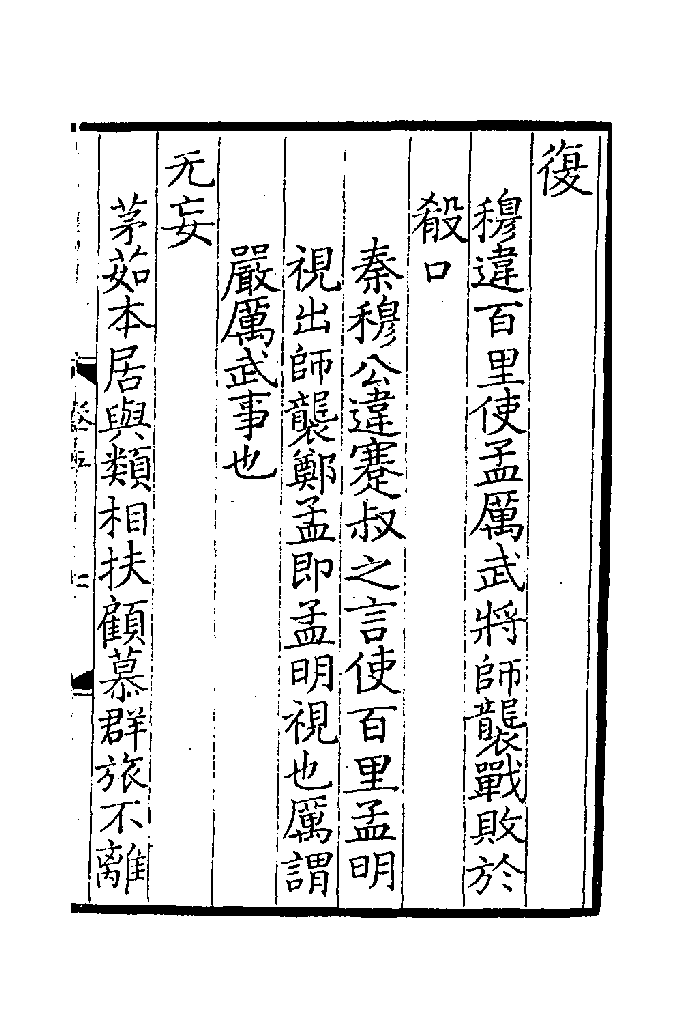 復
穆違百里使孟厲武將師襲戰敗於
殽口
秦穆公違蹇叔之言使百里孟明
視出師襲鄭孟即孟明視也厲謂
嚴厲武事也
无妄
茅茹本居與類相扶顧慕群旅不離